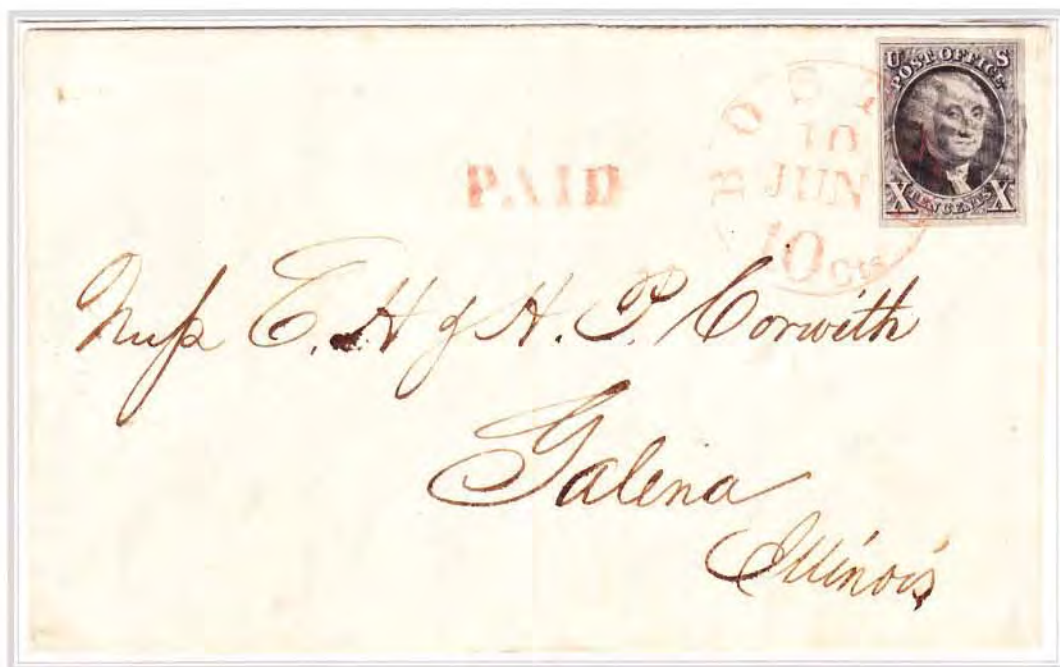 U S
POST OFFICE
X TEN CENTS X
BOST
10
JUN
10cts
PAID
Mess E. H & H. P. Corwith
Galena
Illinois